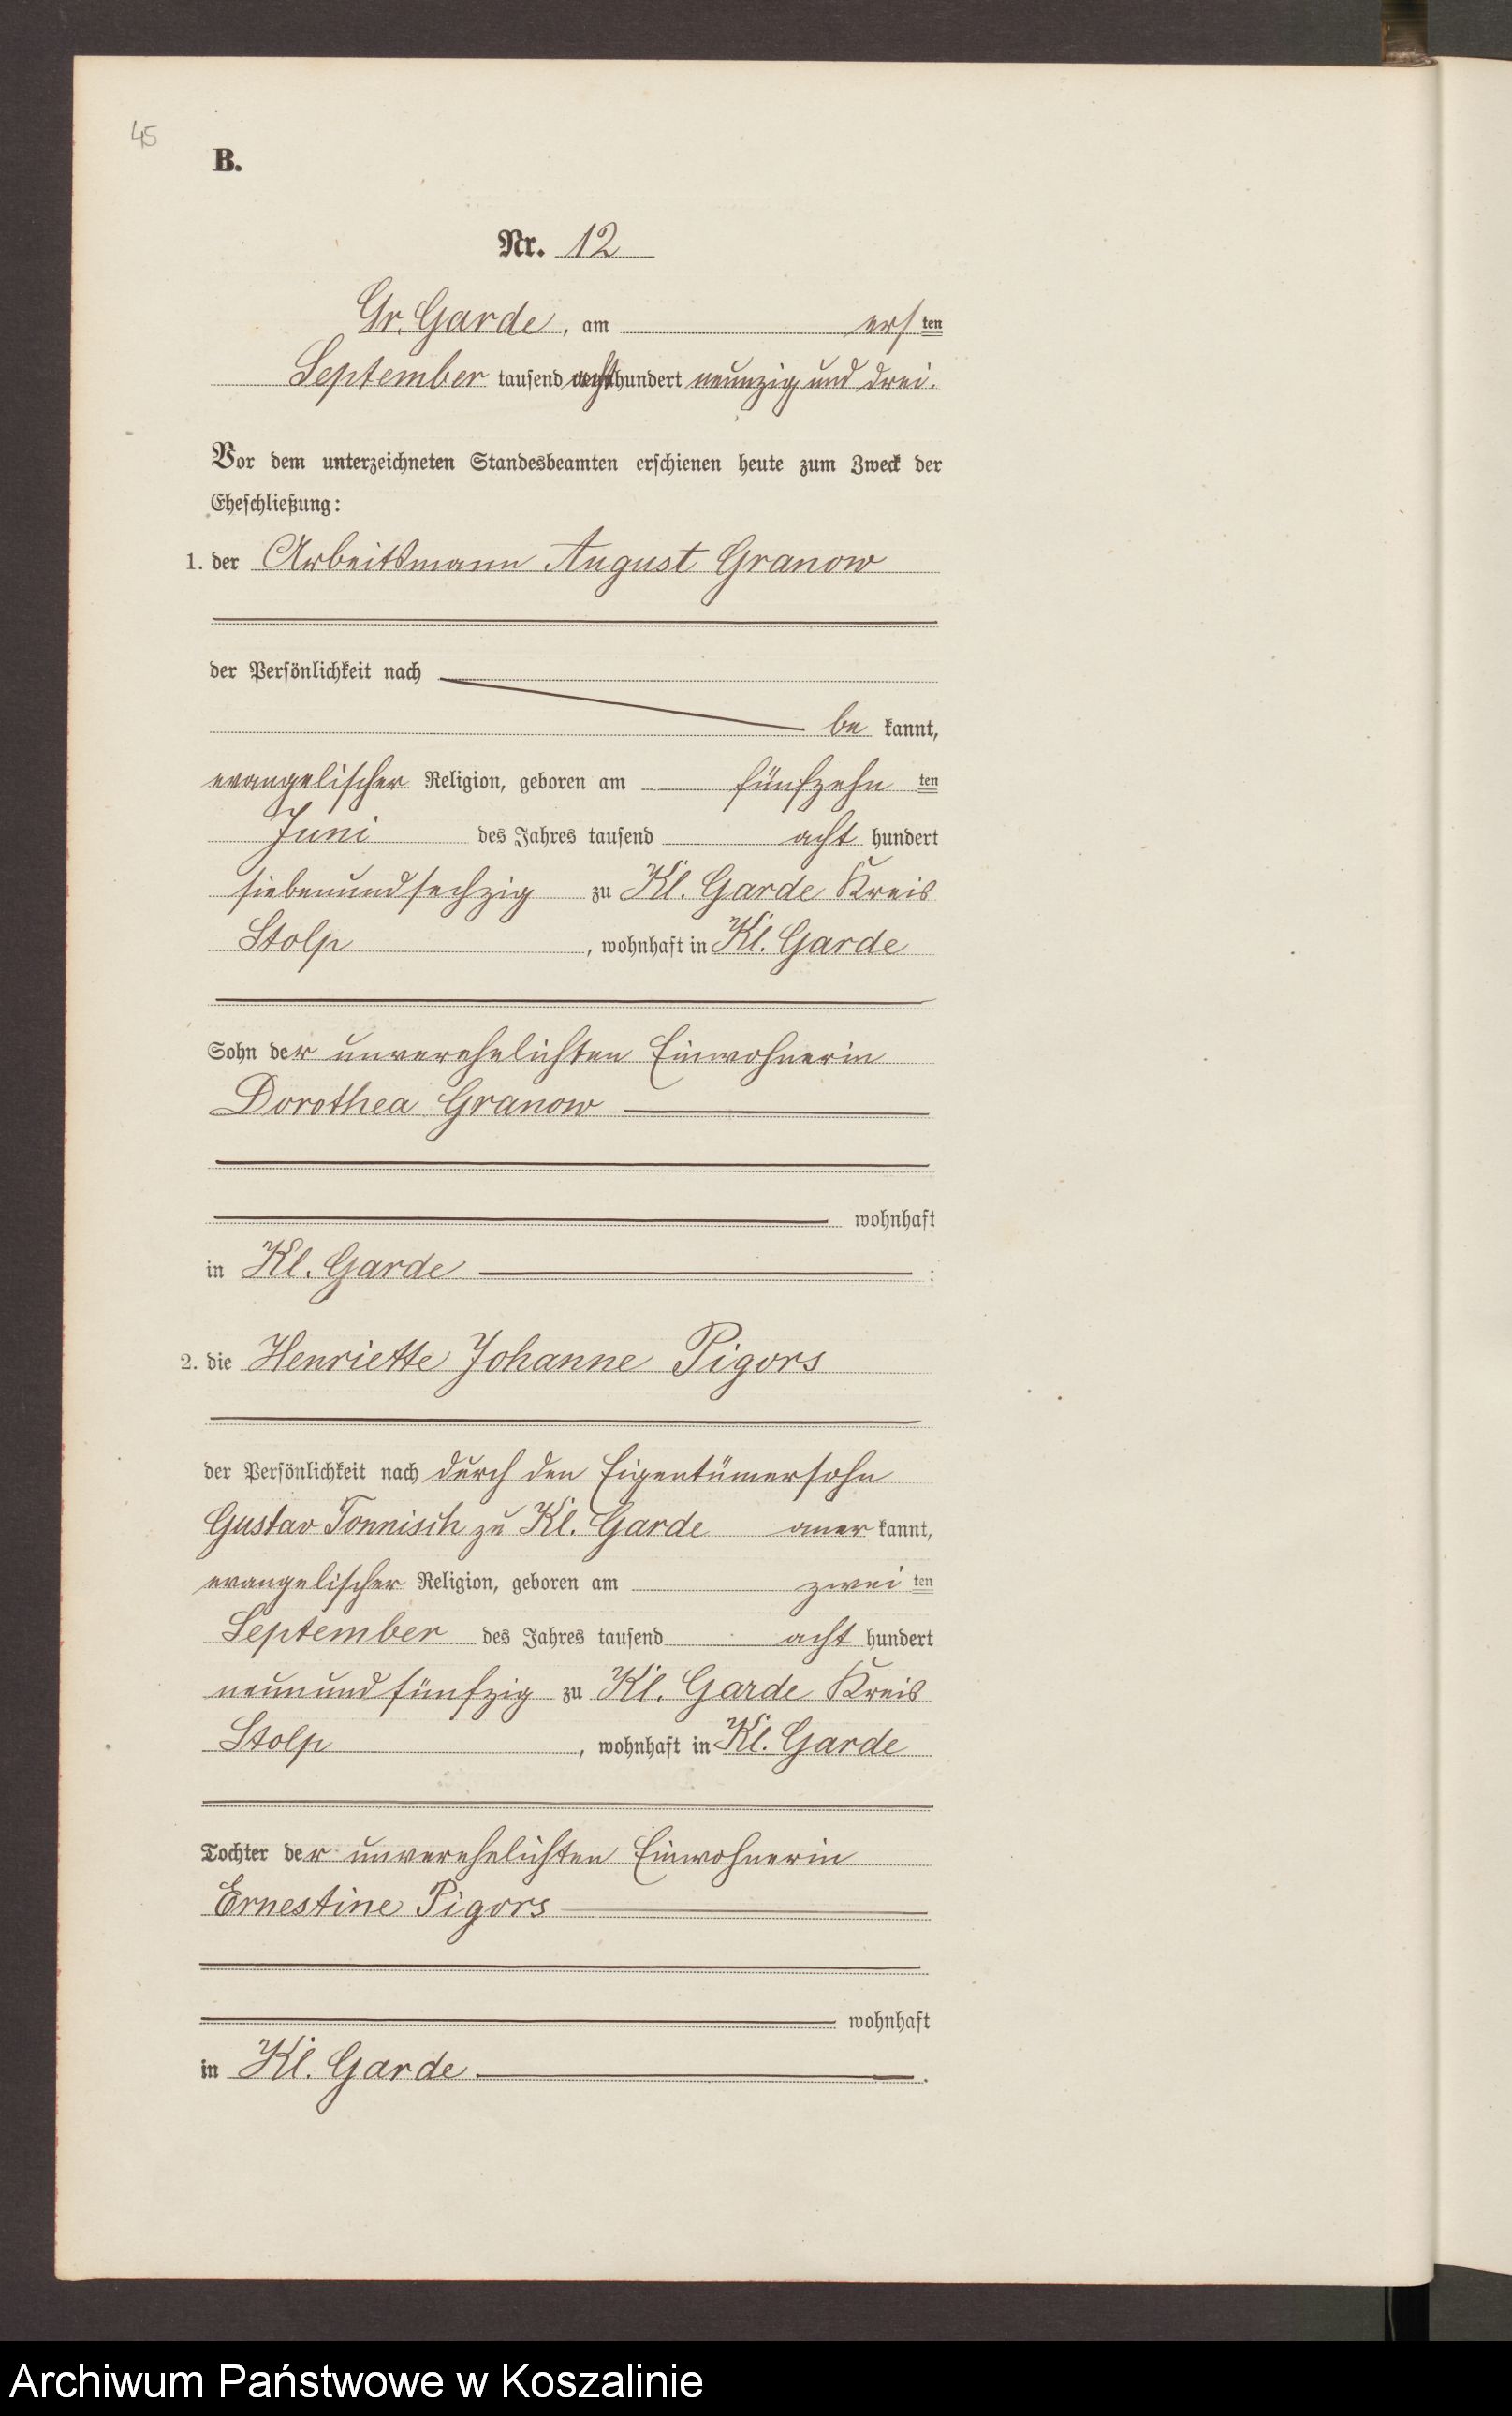 45
B.
Nr. 12
Gr. Garde, am ersten
September tausend achthundert neunzig und drei.
Vor dem unterzeichneten Standesbeamten erschienen heute zum Zweck der
Eheschließung:
1. der Arbeitsmann August Granow
der Persönlichkeit nach
be kannt,
evangelischer Religion, geboren am fünfzehn ten
Juni des Jahres tausend acht hundert
siebenundsechzig zu Kl. Garde Kreis
Stolp, wohnhaft in Kl. Garde
Sohn der unverehelichten Einwohnerin
Dorothea Granow
wohnhaft
in Kl. Garde :
2. die Henriette Johanne Pigors
der Persönlichkeit nach durch den Eigentümersohn
Gustav Tonnisch zu Kl. Garde aner kannt,
evangelischer Religion, geboren am zwei ten
September des Jahres tausend acht hundert
neunundfünfzig zu Kl. Garde Kreis
Stolp, wohnhaft in Kl. Garde
Tochter der unverehelichten Einwohnerin
Ernestine Pigors
wohnhaft
in Kl. Garde.
Archiwum Państwowe w Koszalinie